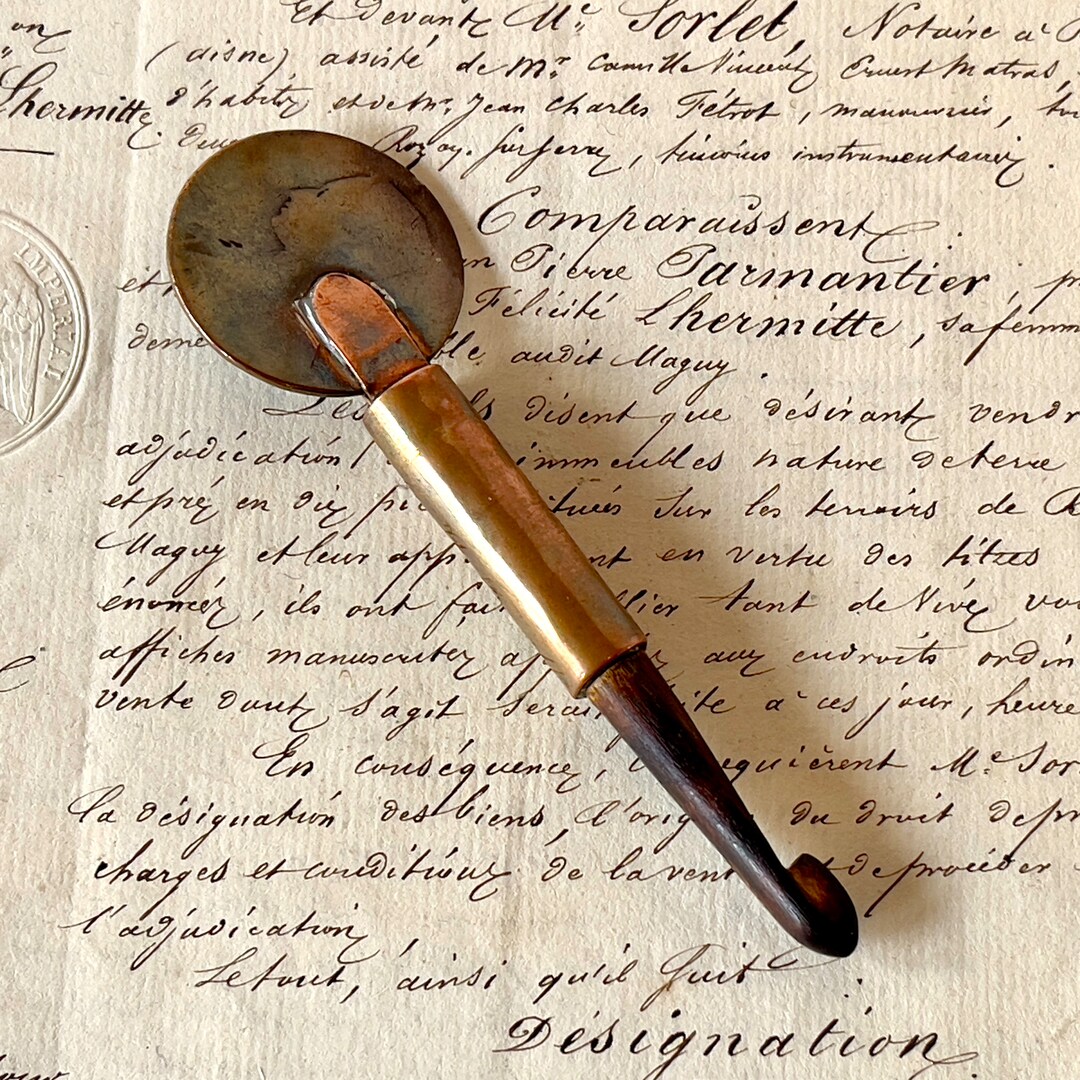 on
Lhermitte
IMPERIAL
Et devant Me Sorlet, Notaire à
(aisne) assisté de Mr. Camille Vincent Ernest Matral,
d'habit et de Mr. Jean Charles Fétrot, manouvrier,
témoins instrumentaires.
Comparaissent
Pierre Parmantier,
Félicité Lhermitte, sa femme
deme ble audit Maguy.
Les ls disent que désirant vendr
adjudication immeubles nature de terre
et pré en dix piè situés sur les terroirs de R
Maguy et leur app nt en vertu des titres
énoncés, ils ont fai blier tant de vive
affiches manuscrites ap aux endroits ordin
vente dont s'agit serai ite à ces jour, heure
En conséquence, requièrent Me Sor
la désignation des biens, l'orig du droit de pr
charges et conditions de la vent et de procéder
l'adjudication
Le tout, ainsi qu'il suit
Désignation